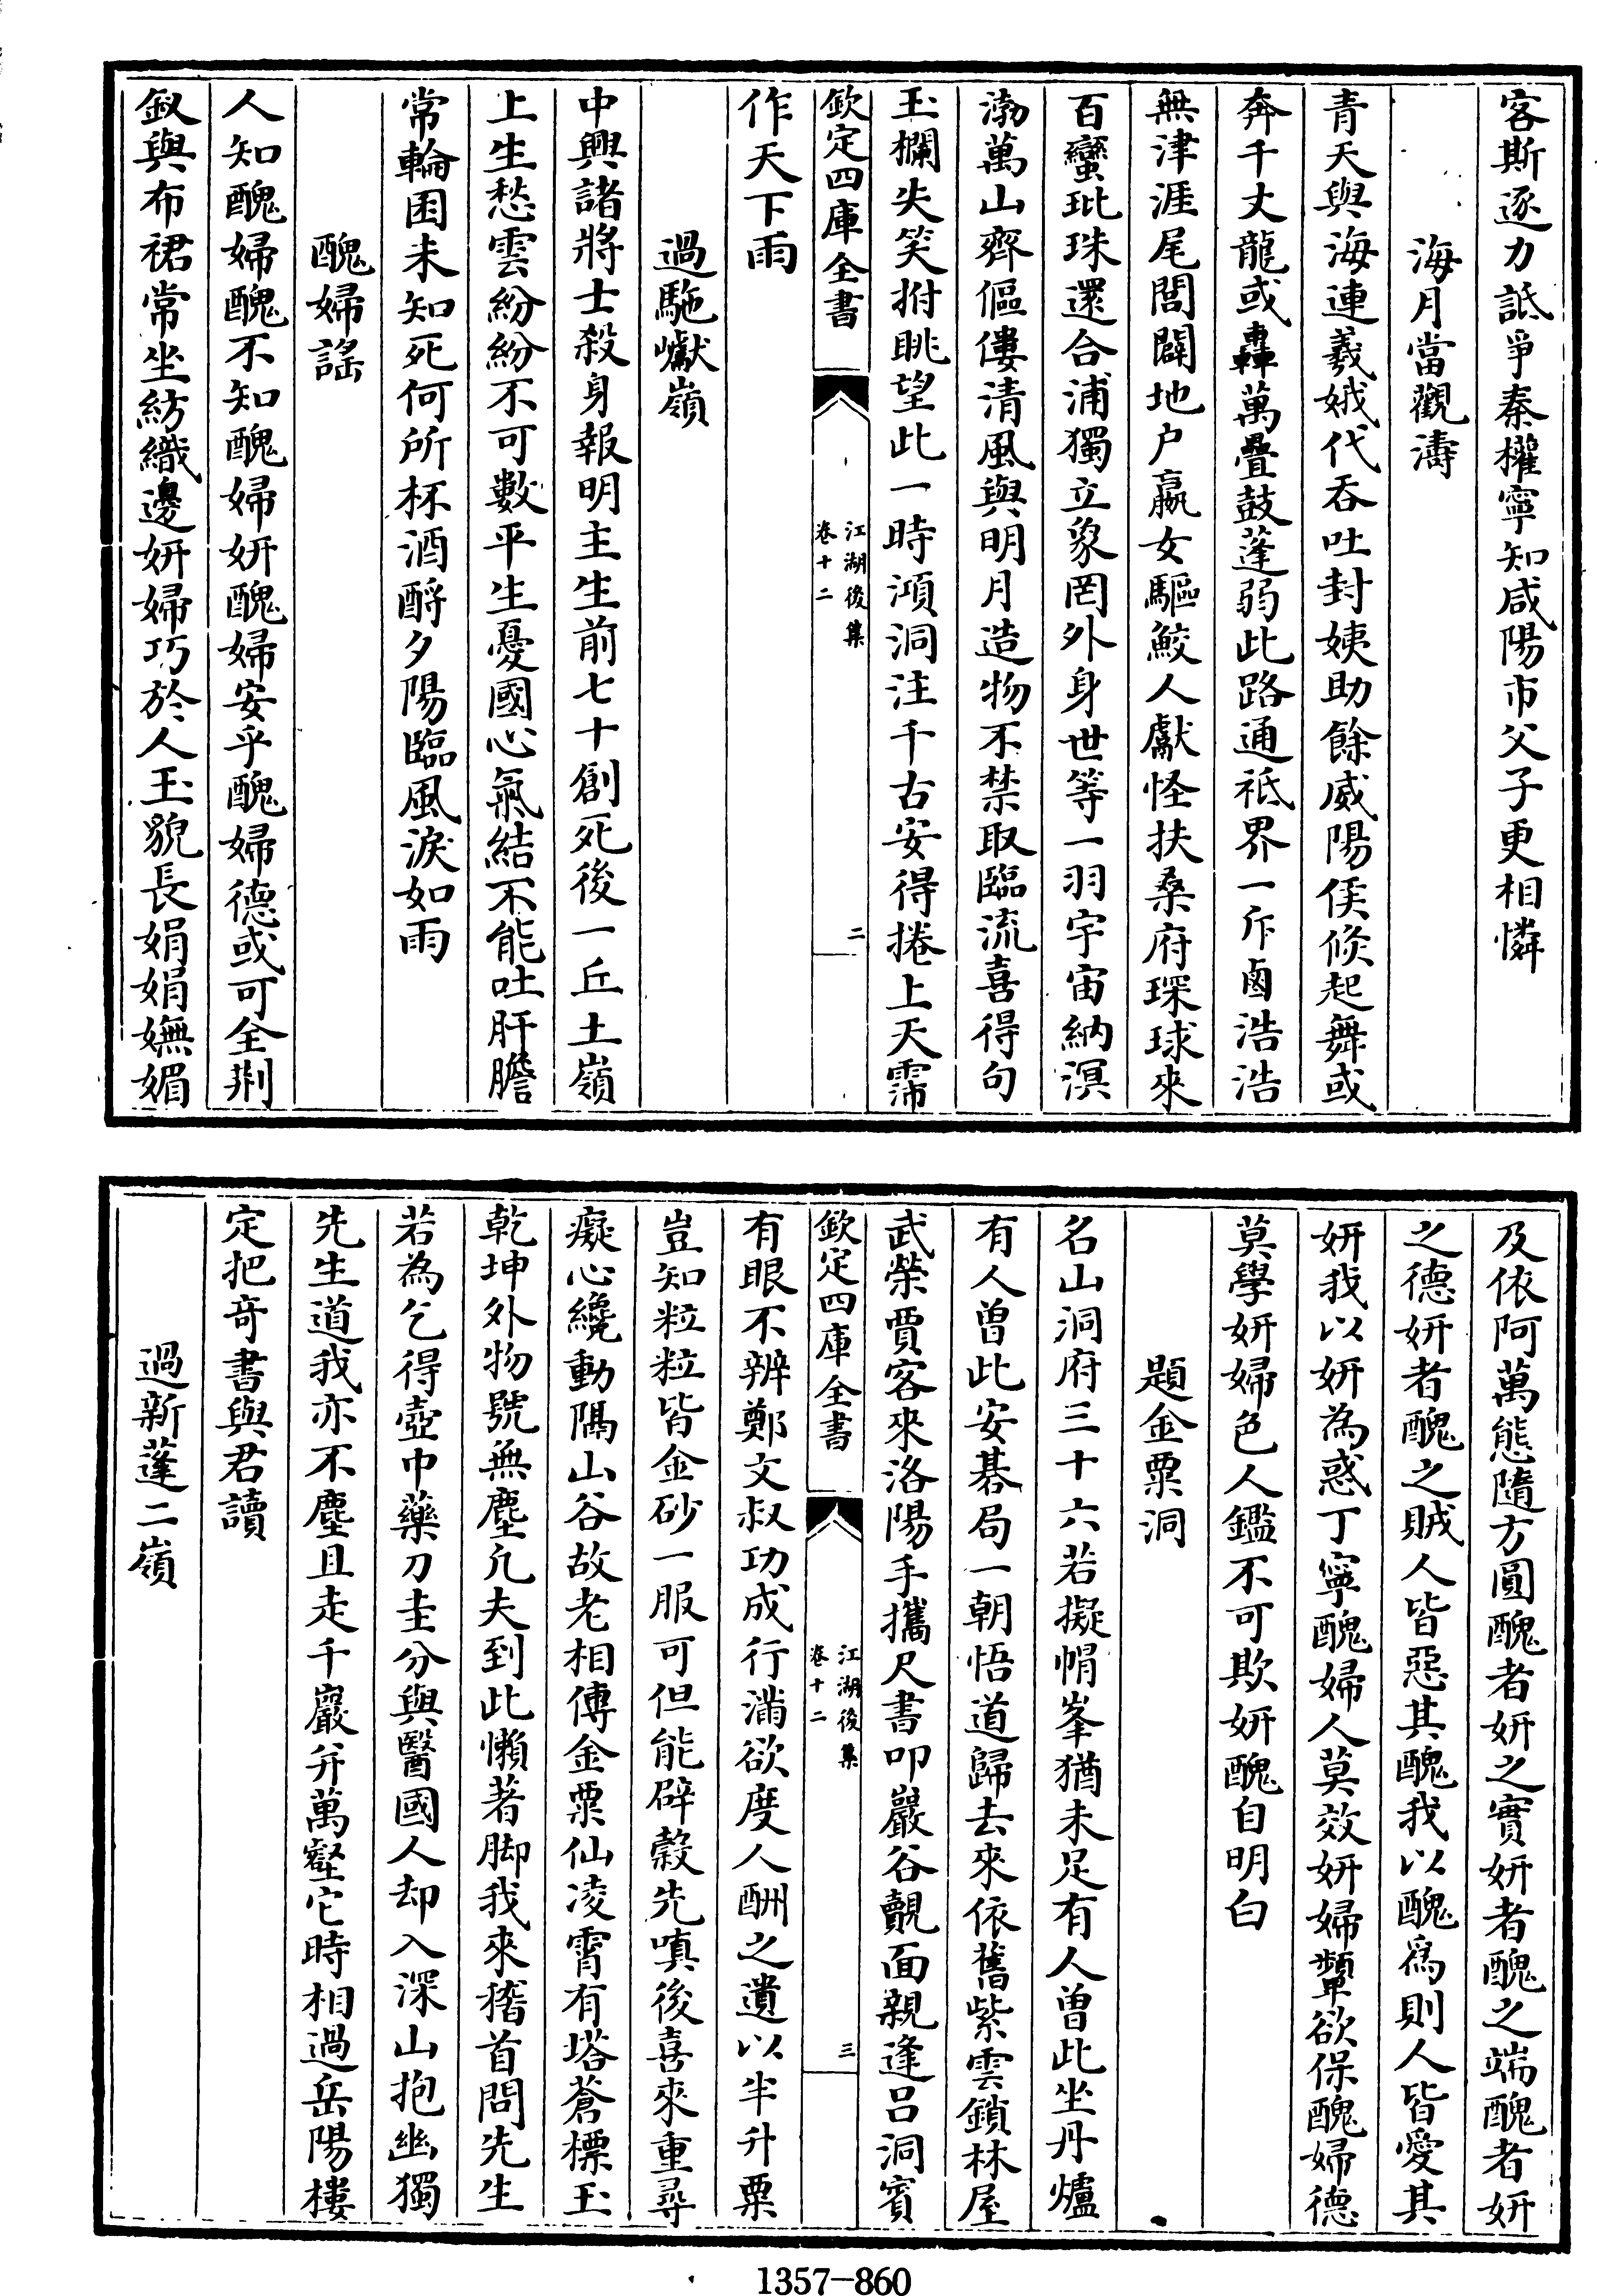 客斯逐力詆爭秦權寧知咸陽市父子更相憐
海月當觀濤
青天與海連羲娥代吞吐封姨助餘威陽侯倐起舞或
奔千丈龍或轟萬疊鼓蓬弱此路通祗界一斥鹵浩浩
無津涯尾閭闢地户嬴女驅鮫人獻怪扶桑府琛球來
百蠻玭珠還合浦獨立象罔外身世等一羽宇宙納溟
渤萬山齊傴僂清風與明月造物不禁取臨流喜得句
玉欄失笑拊眺望此一時澒洞注千古安得捲上天霈
欽定四庫全書
江湖後集
卷十二
二
作天下雨
過馳巘嶺
中興諸將士殺身報明主生前七十創死後一丘土嶺
上生愁雲紛紛不可數平生憂國心氣結不能吐肝膽
常輪囷未知死何所杯酒酹夕陽臨風淚如雨
醜婦謡
人知醜婦醜不知醜婦妍醜婦安乎醜婦德或可全荆
釵與布裙常坐紡織邊妍婦巧於人玉貌長娟娟嫵媚
及依阿萬態隨方圓醜者妍之實妍者醜之端醜者妍
之德妍者醜之賊人皆惡其醜我以醜為則人皆愛其
妍我以妍為惑丁寧醜婦人莫效妍婦顰欲保醜婦德
莫學妍婦色人鑑不可欺妍醜自明白
題金粟洞
名山洞府三十六若擬帽峯猶未足有人曾此坐丹爐
有人曾此安碁局一朝悟道歸去來依舊紫雲鎖林屋
武榮賈客來洛陽手攜尺書叩巖谷覿面親逢吕洞賓
欽定四庫全書
江湖後集
卷十二
三
有眼不辨鄭文叔功成行滿欲度人酬之遺以半升粟
豈知粒粒皆金砂一服可但能辟穀先嗔後喜來重尋
癡心纔動隅山谷故老相傳金粟仙凌霄有塔蒼標玉
乾坤外物號無塵凡夫到此懶著脚我來稽首問先生
若為乞得壺中藥刀圭分與醫國人却入深山抱幽獨
先生道我亦不塵且走千巖并萬壑它時相過岳陽樓
定把奇書與君讀
過新蓬二嶺
1357—860